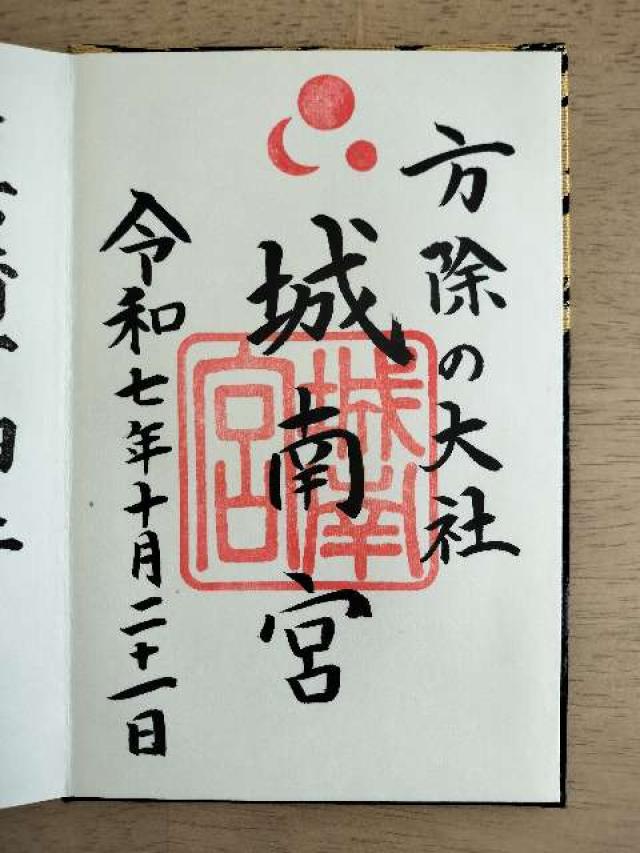 方除の大社
城南宮
城南宮
令和七年十月二十一日